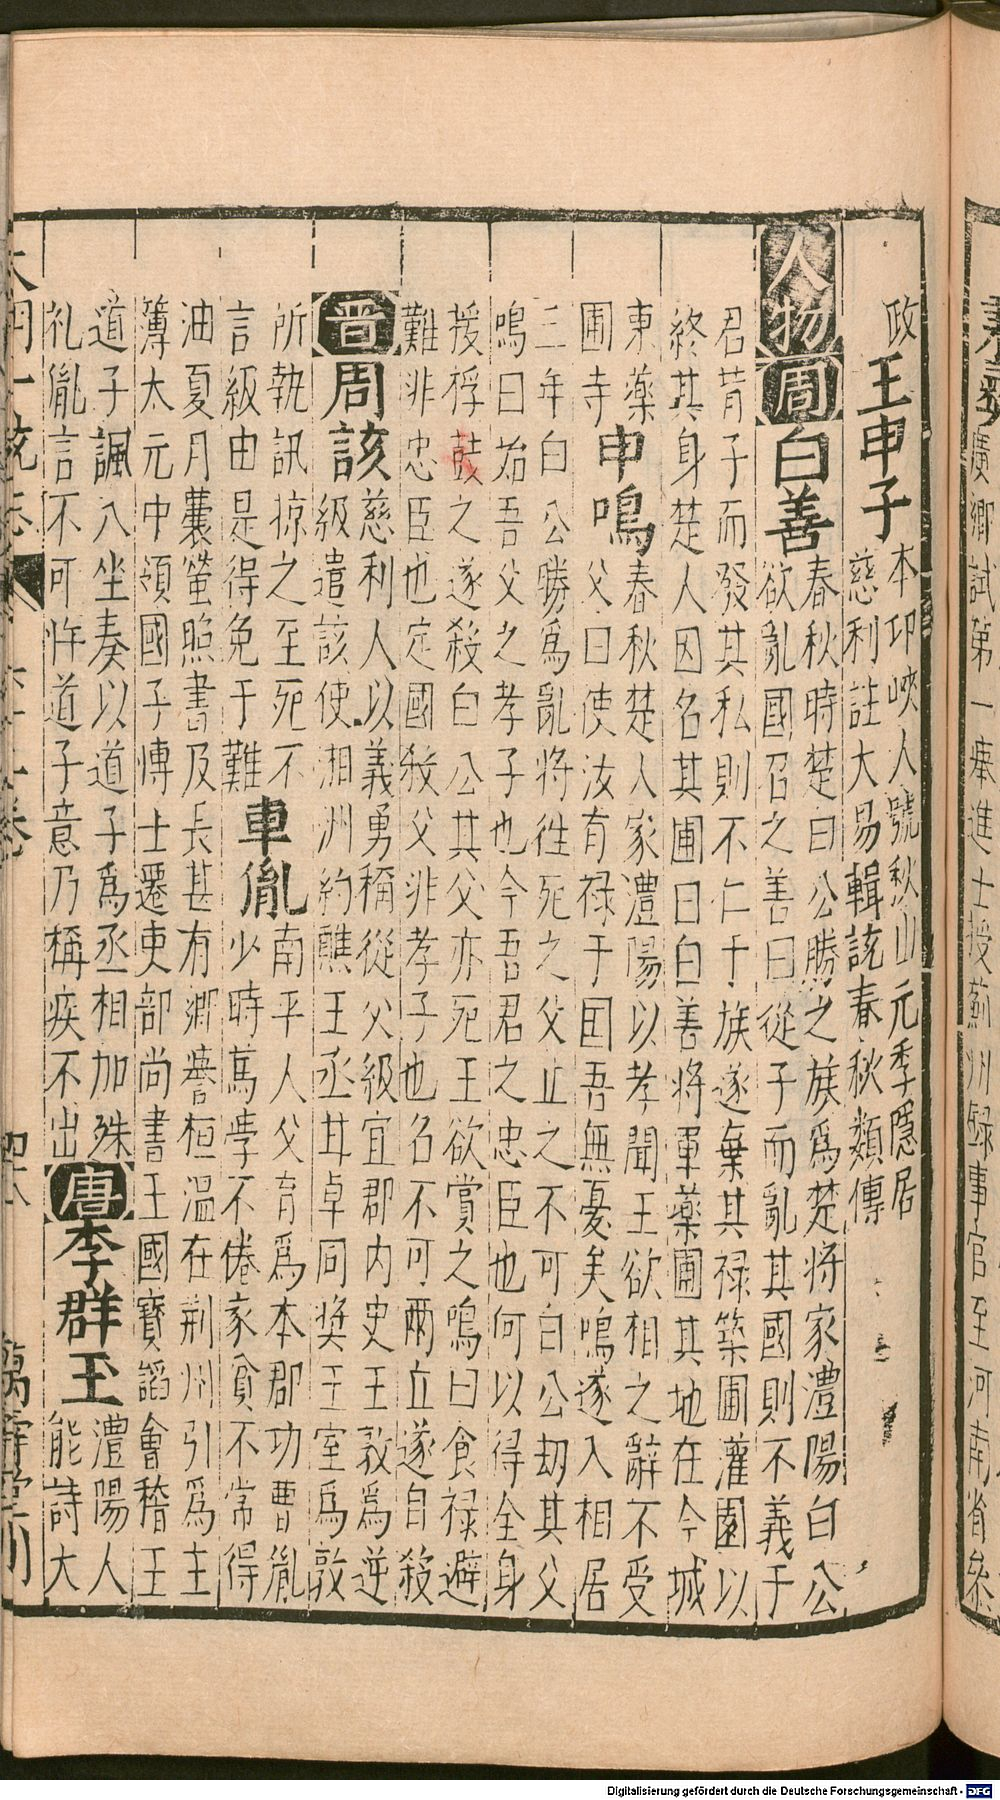 秦藁廣鄉試第一舉進士授薊州録事官至河南省叅
政
王申子
本邛峽人號秋山元季隱居
慈利註大易輯說春秋類傳
人物
周
白善
春秋時楚曰公勝之族爲楚將家澧陽白公
欲亂國召之善曰從子而亂其國則不義于
君背子而發其私則不仁于族遂棄其禄築圃灌園以
終其身楚人因名其圃曰白善將軍藥圃其地在今城
東藥
圃寺
申鳴
春秋楚人家澧陽以孝聞王欲相之辭不受
父曰使汝有禄于国吾無憂矣鳴遂入相居
三年白公勝爲亂將徃死之父止之不可白公刧其父
鳴曰始吾父之孝子也今吾君之忠臣也何以得全身
援桴鼓之遂殺白公其父亦死王欲賞之鳴曰食禄避
難非忠臣也定國殺父非孝子也名不可兩立遂自殺
晋
周該
慈利人以義勇稱從父級宜郡内史王敦爲逆
級遣該使湘洲約譙王丞甘卓同奬王室爲敦
所執訊掠之至死不
言級由是得免于難
車胤
南平人父育爲本郡功曹胤
少時篤學不倦家貧不常得
油夏月囊螢照書及長甚有鄉譽桓温在荆州引爲主
簿太元中領國子博士遷吏部尚書王國寳謟會稽王
道子諷八坐奏以道子爲丞相加殊
礼胤言不可忤道子意乃稱疾不出
唐
李群玉
澧陽人
能詩大
大明一統志
六十二卷
四十八
萬壽堂刊
Digitalisierung gefördert durch die Deutsche Forschungsgemeinschaft - DFG